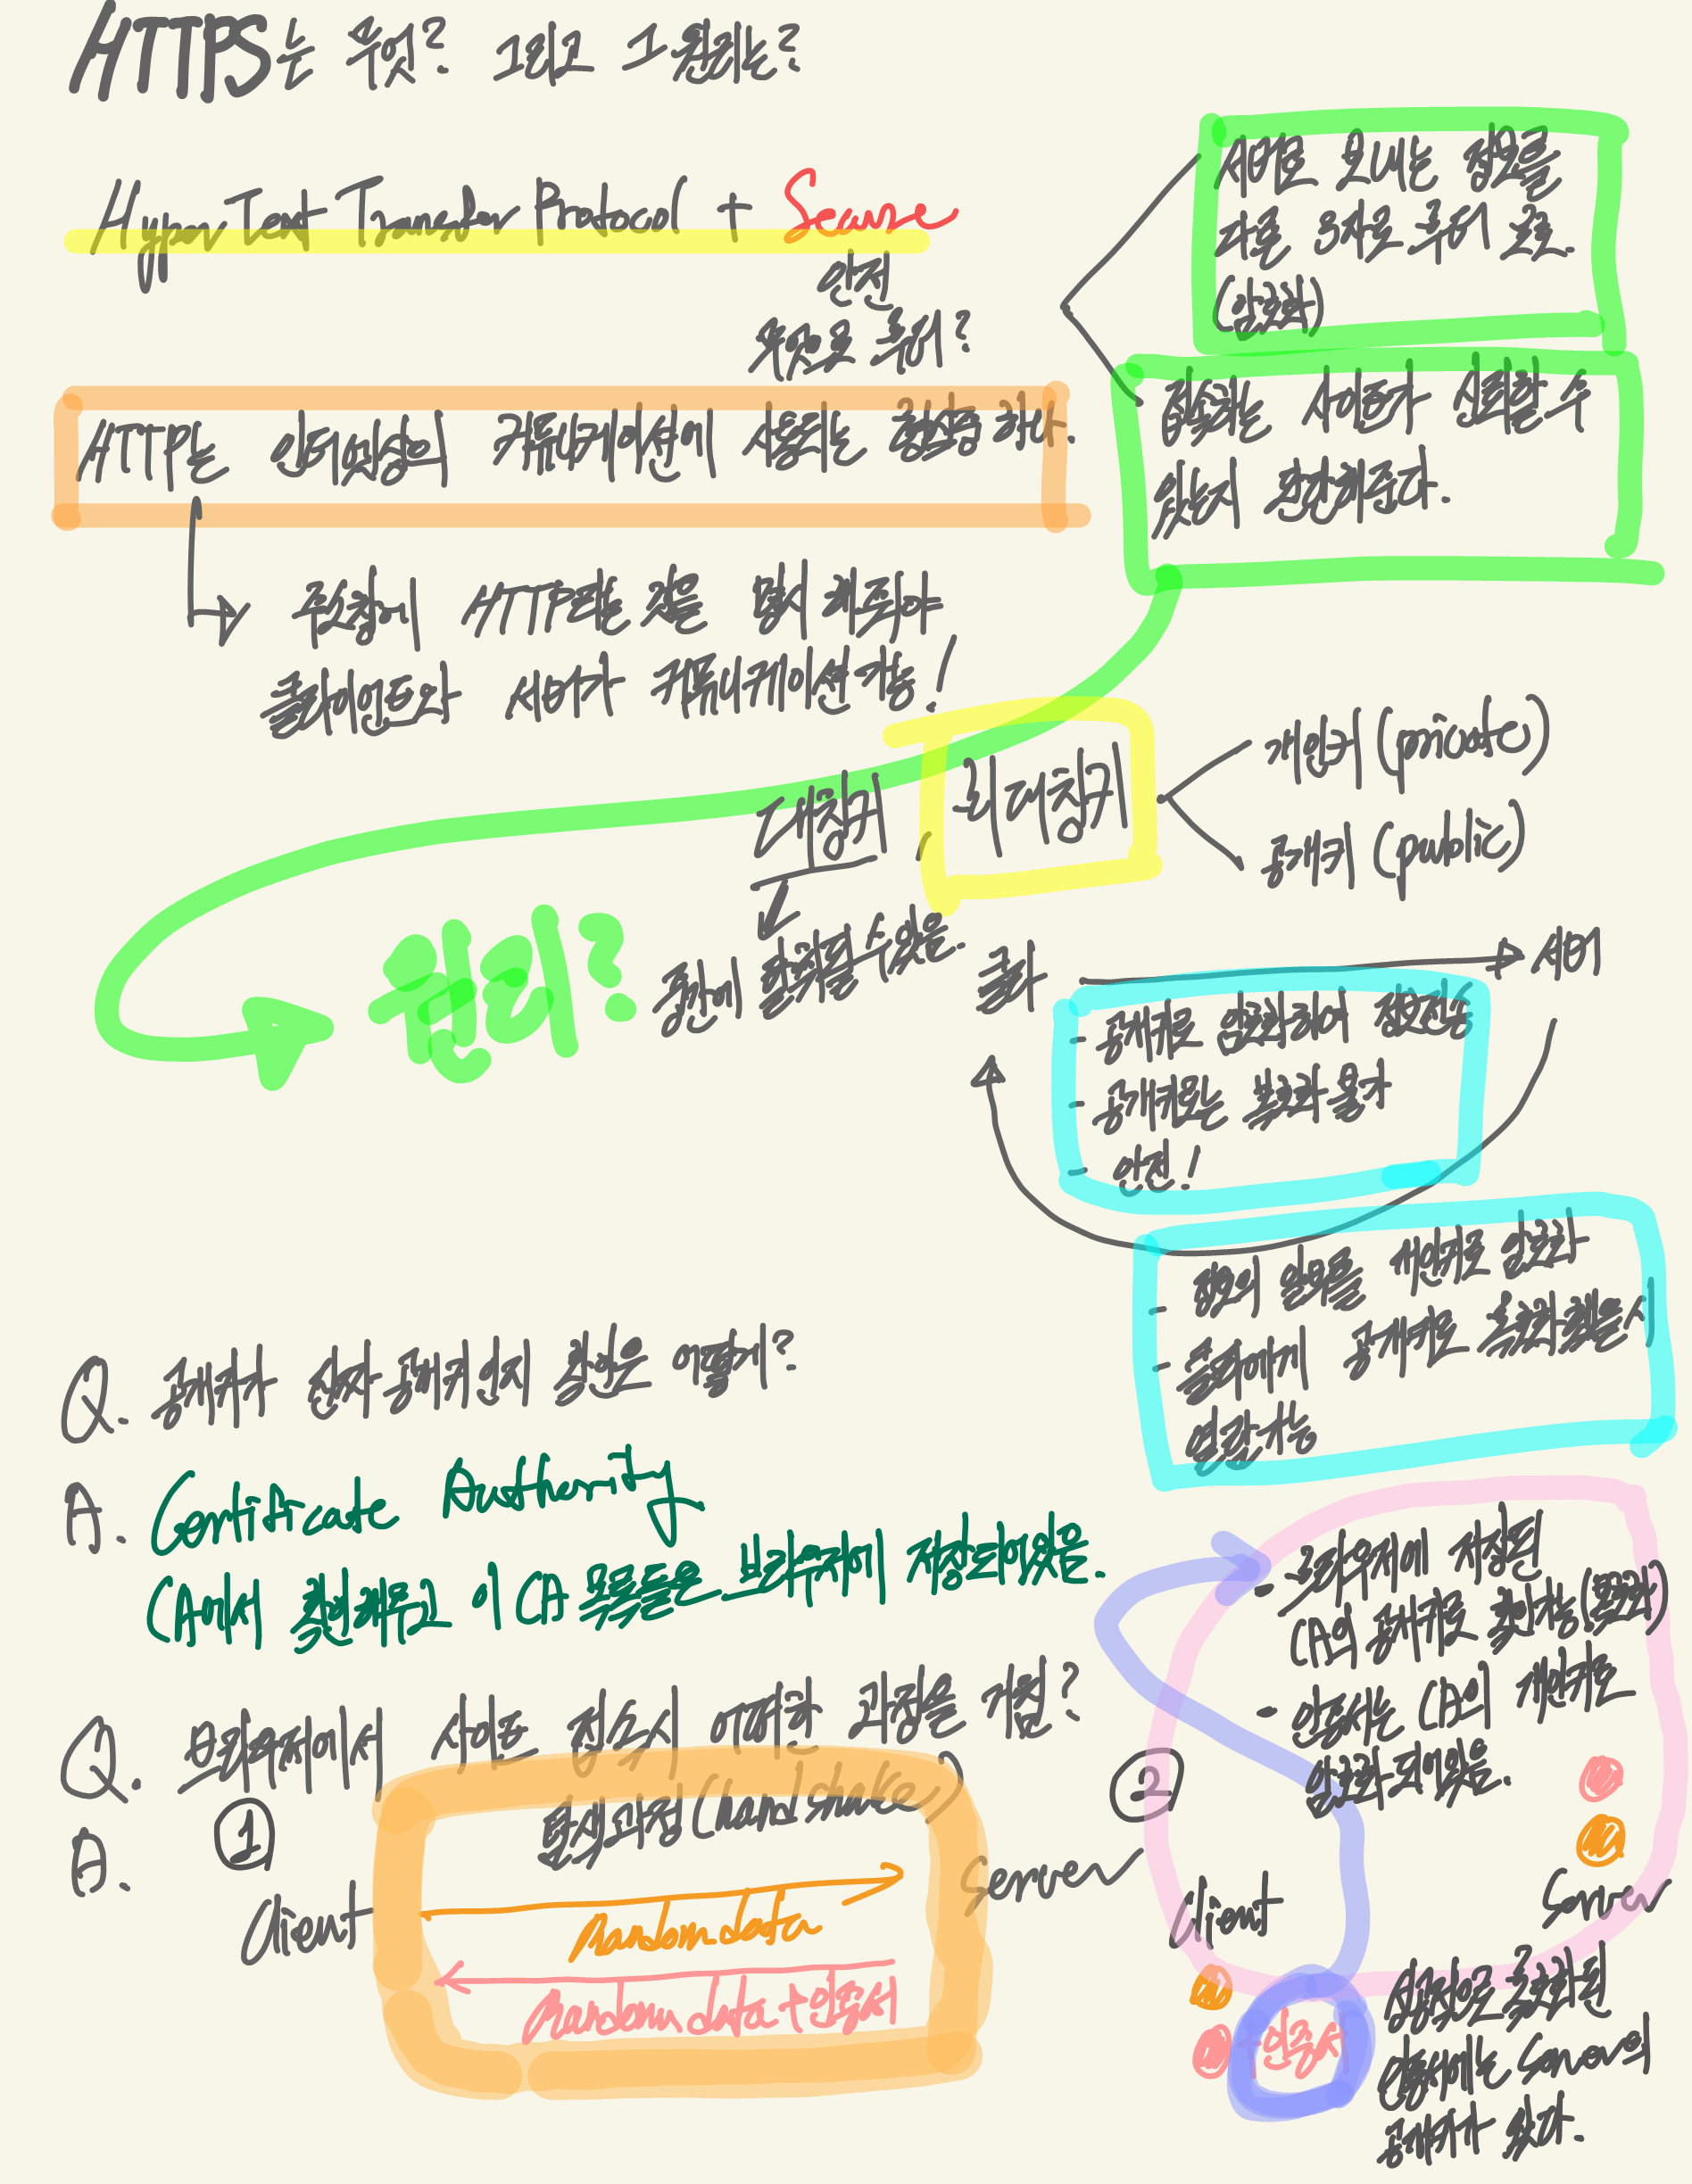 HTTPS는 무엇? 그리고 그 원리는?
Hyper Text Transfer Protocol + Secure
안전
무엇으로 부터?
서버로 보내는 정보를
다른 3자로 부터 보호.
(암호화)
접속하는 사이트가 신뢰할 수
있는지 판단해준다.
HTTP는 인터넷상의 커뮤니케이션에 사용되는 형식중 하나.
주소창에 HTTP라는 것을 명시 해줘야
클라이언트와 서버가 커뮤니케이션 가능!
원리?
대칭키, 비대칭키
개인키 (private)
공개키 (public)
중간에 탈취될 수 있음.
클라
서버
- 공개키로 암호화하여 정보전송
- 공개키로는 복호화 불가
- 안전!
- 정보의 일부를 개인키로 암호화
- 클라에게 공개키로 복호화 했을 시
열람가능
Q. 공개키가 진짜 공개키인지 확인은 어떻게?
A. Certificate Authority
CA에서 확인해주고 이 CA 목록들은 브라우저에 저장되어있음.
Q. 브라우저에서 사이트 접속시 어떠한 과정을 거침?
A. ①
탐색과정 (hand shake)
Client
Server
Random data
Random data + 인증서
②
- 브라우저에 저장된
CA의 공개키로 확인가능(복호화)
- 인증서는 CA의 개인키로
암호화 되어있음.
Client
Server
+인증서
성공적으로 복호화된
인증서에는 Server의
공개키가 있다.